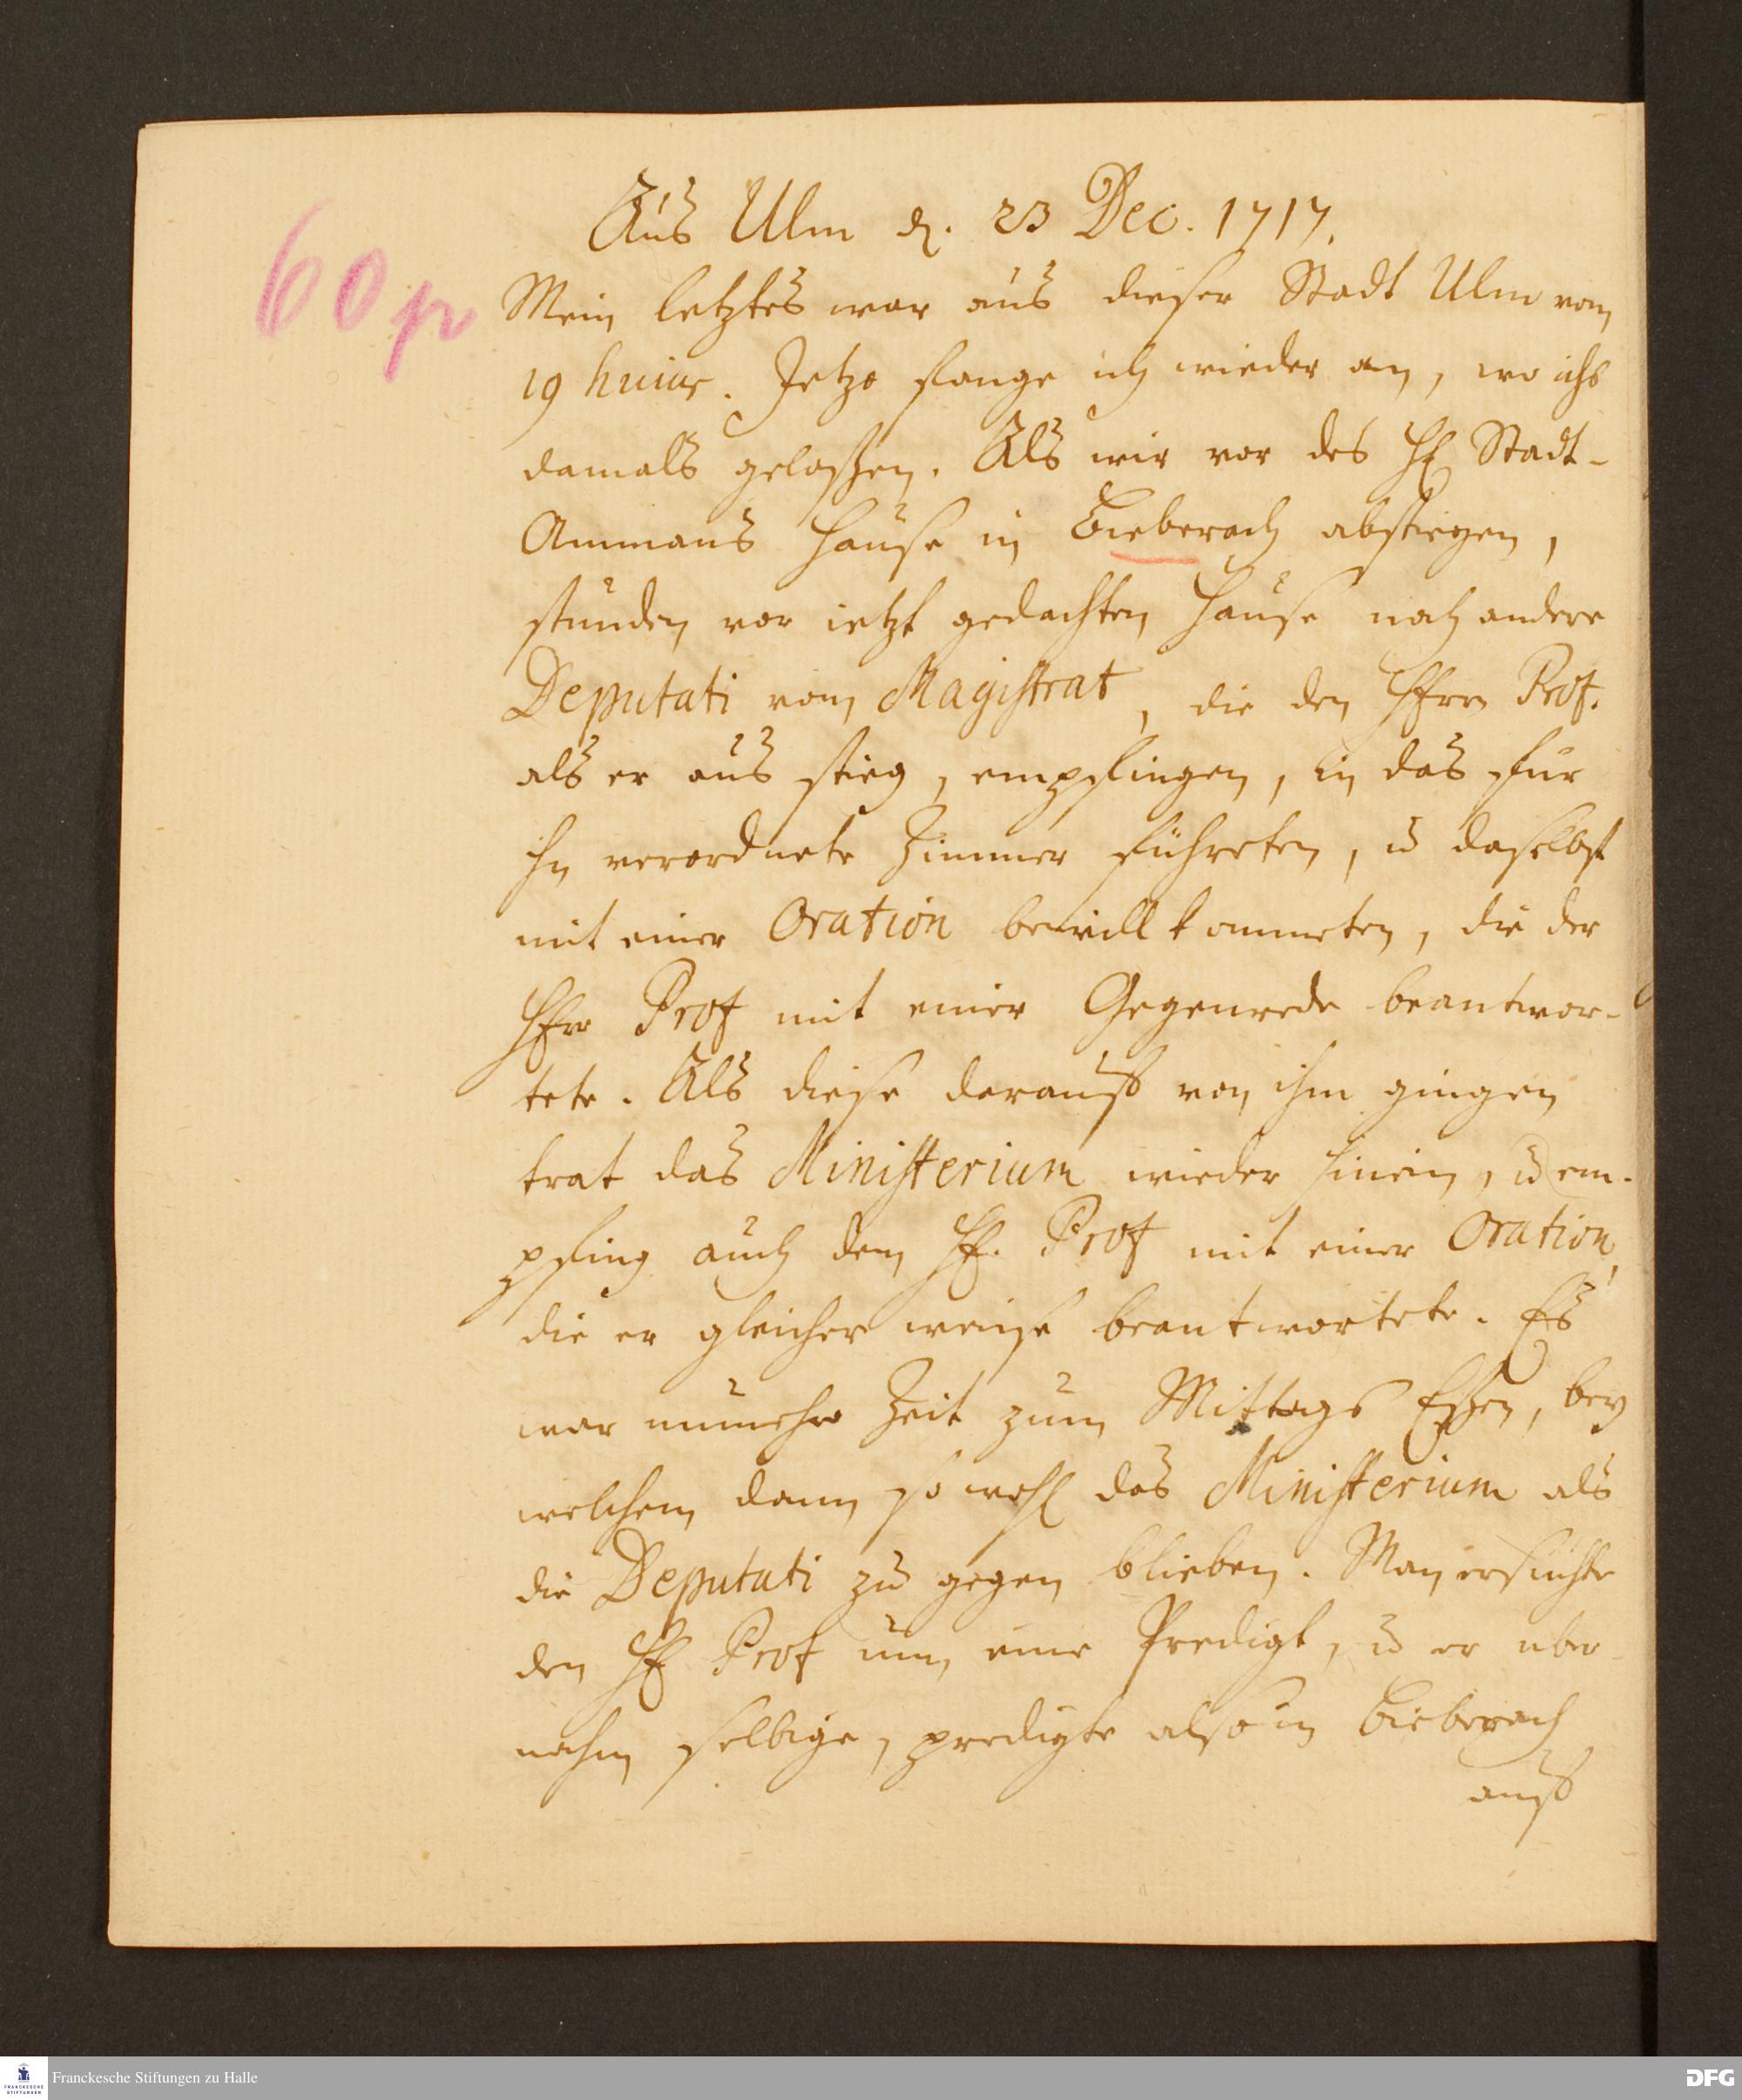 60 p
Aus Ulm d. 23 Dec. 1717.
Mein letztes war aus dieser Stadt Ulm vom
19 huius. Jetzo fange ich wieder an, wo ichs
damals gelaßen. Als wir vor des H Stadt-
Ammans Hause in Bieberach abstiegen,
stunden vor ietzt gedachten Hause noch andere
Deputati vom Magistrat, die den Hhrn Prof.
als er aus stieg, empfingen, in das für
ihn verordnete Zimmer führeten, u daselbst
mit einer Oration bewillkommeten, die der
Hhr Prof mit einer Gegenrede beantwor-
tete. Als diese darauf von ihm gingen
trat das Ministerium wieder hinein, u em-
pfing auch den HE. Prof mit einer Oration,
die er gleicher weise beantwortete. Es
war nunmehr Zeit zum Mittags Eßen, bey
welchem dann so wohl das Ministerium als
die Deputati zu gegen blieben. Man ersuchte
den HE Prof um eine Predigt, u er uber-
nahm selbige, predigte also in Bieberach
auf
Franckesche Stiftungen zu Halle
FRANCKESCHE STIFTUNGEN
DFG